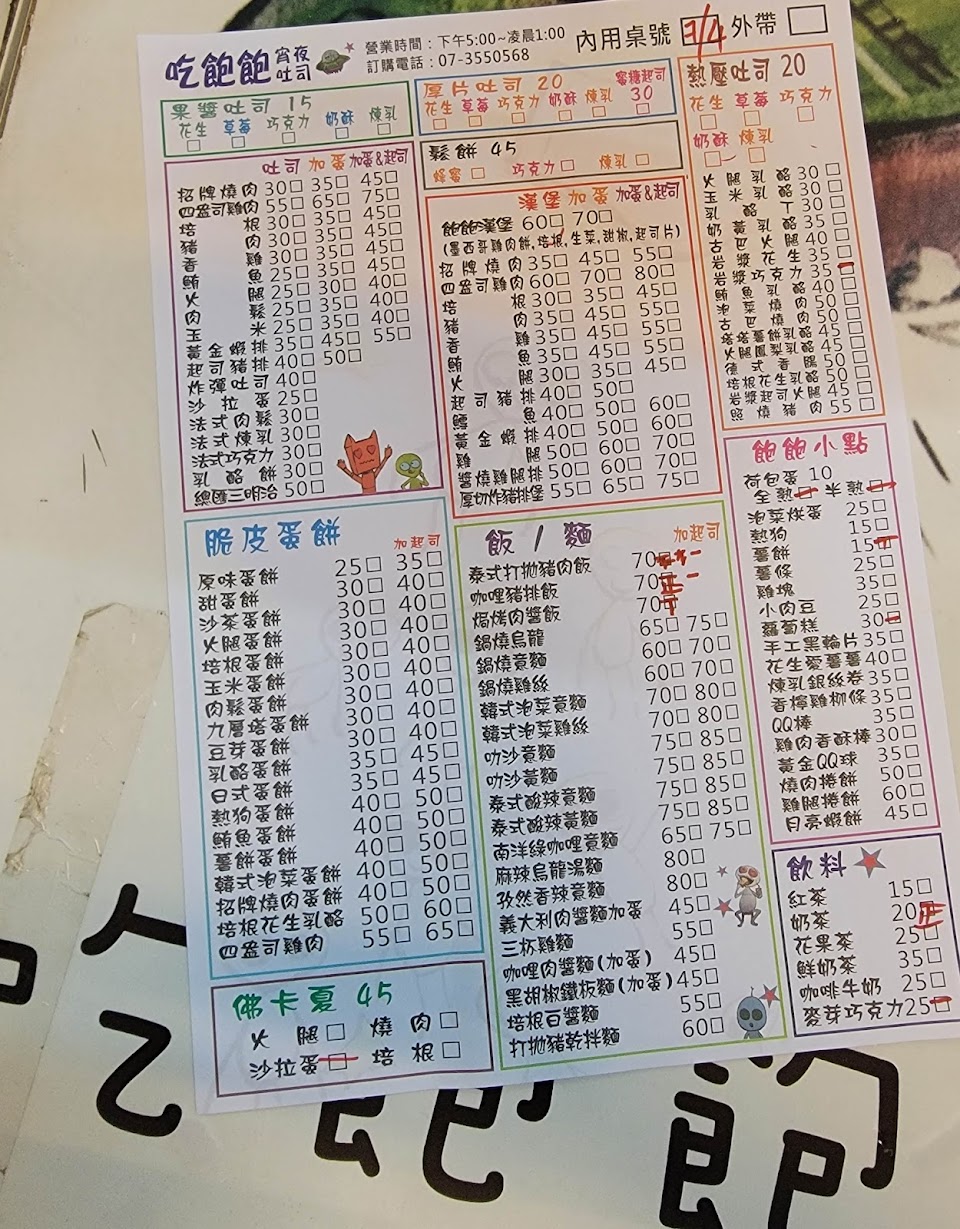 吃飽飽 宵夜吐司
營業時間：下午5:00~凌晨1:00
訂購電話：07-3550568
內用桌號 3/4 外帶 □
果醬吐司 15
花生□ 草莓□ 巧克力□ 奶酥□ 煉乳□
厚片吐司 20
花生□ 草莓□ 巧克力□ 奶酥□ 煉乳□ 蜜糖起司 30□
鬆餅 45
蜂蜜□ 巧克力□ 煉乳□
熱壓吐司 20
花生□ 草莓□ 巧克力□
奶酥□ 煉乳□
火腿乳酪 30□
玉米乳酪 30□
乳酪丁 30□
奶黃乳酪 35□
古巴火腿 40□
岩漿花生 35□
岩漿巧克力 35□
鮪魚乳酪 40□
泡菜燒肉 50□
古巴燒肉 50□
塔塔薯餅乳酪 45□
火腿鳳梨乳酪 45□
德式香腸 50□
培根花生乳酪 50□
岩漿起司火腿 45□
照燒豬肉 55□
吐司 加蛋 加蛋&起司
招牌燒肉 30□ 35□ 45□
四盎司雞肉 55□ 65□ 75□
培根 30□ 35□ 45□
豬肉 30□ 35□ 45□
香雞 30□ 35□ 45□
鮪魚 25□ 30□ 40□
火腿 25□ 35□ 40□
肉鬆 25□ 35□ 40□
玉米 25□ 35□ 40□
黃金蝦排 35□ 45□ 55□
起司豬排 40□ 50□
炸彈吐司 40□
沙拉蛋 25□
法式肉鬆 30□
法式煉乳 30□
法式巧克力 30□
乳酪餅 30□
總匯三明治 50□
漢堡 加蛋 加蛋&起司
飽飽漢堡 60□ 70□
(墨西哥雞肉餅,培根,生菜,甜椒,起司片)
招牌燒肉 35□ 45□ 55□
四盎司雞肉 60□ 70□ 80□
培根 30□ 35□ 45□
豬肉 35□ 45□ 55□
香雞 35□ 45□ 55□
鮪魚 35□ 45□ 55□
火腿 30□ 35□ 45□
起司豬排 40□ 50□
鱈魚 40□ 50□ 60□
黃金蝦排 40□ 50□ 60□
雞腿 50□ 60□ 70□
醬燒雞腿排 50□ 60□ 70□
厚切炸豬排堡 55□ 65□ 75□
飽飽小點
荷包蛋 10
全熟□ 半熟□
泡菜烘蛋 25□
熱狗 15□
薯餅 15□
薯條 25□
雞塊 35□
小肉豆 25□
蘿蔔糕 30□
手工黑輪片 35□
花生愛薯薯 40□
煉乳銀絲卷 35□
香檸雞柳條 35□
QQ棒 35□
雞肉香酥棒 30□
黃金QQ球 35□
燒肉捲餅 50□
雞腿捲餅 60□
月亮蝦餅 45□
脆皮蛋餅 加起司
原味蛋餅 25□ 35□
甜蛋餅 30□ 40□
沙茶蛋餅 30□ 40□
火腿蛋餅 30□ 40□
培根蛋餅 30□ 40□
玉米蛋餅 30□ 40□
肉鬆蛋餅 30□ 40□
九層塔蛋餅 30□ 40□
豆芽蛋餅 30□ 40□
乳酪蛋餅 35□ 45□
日式蛋餅 35□ 45□
熱狗蛋餅 40□ 50□
鮪魚蛋餅 40□ 50□
薯餅蛋餅 40□ 50□
韓式泡菜蛋餅 40□ 50□
招牌燒肉蛋餅 40□ 50□
培根花生乳酪 50□ 60□
四盎司雞肉 55□ 65□
飯 / 麵 加起司
泰式打拋豬肉飯 70□
咖哩豬排飯 70□ 正一
焗烤肉醬飯 70□
鍋燒烏龍 65□ 75□
鍋燒意麵 60□ 70□
鍋燒雞絲 60□ 70□
韓式泡菜意麵 70□ 80□
韓式泡菜雞絲 70□ 80□
叻沙意麵 75□ 85□
叻沙黃麵 75□ 85□
泰式酸辣意麵 75□ 85□
泰式酸辣黃麵 75□ 85□
南洋綠咖哩意麵 65□ 75□
麻辣烏龍湯麵 80□
孜然香辣意麵 80□
義大利肉醬麵加蛋 45□
三杯雞麵 55□
咖哩肉醬麵(加蛋) 45□
黑胡椒鐵板麵(加蛋) 45□
培根白醬麵 55□
打拋豬乾拌麵 60□
飲料
紅茶 15□
奶茶 20□ 正
花果茶 25□
鮮奶茶 35□
咖啡牛奶 25□
麥芽巧克力 25□
佛卡夏 45
火腿□ 燒肉□
沙拉蛋□ 培根□